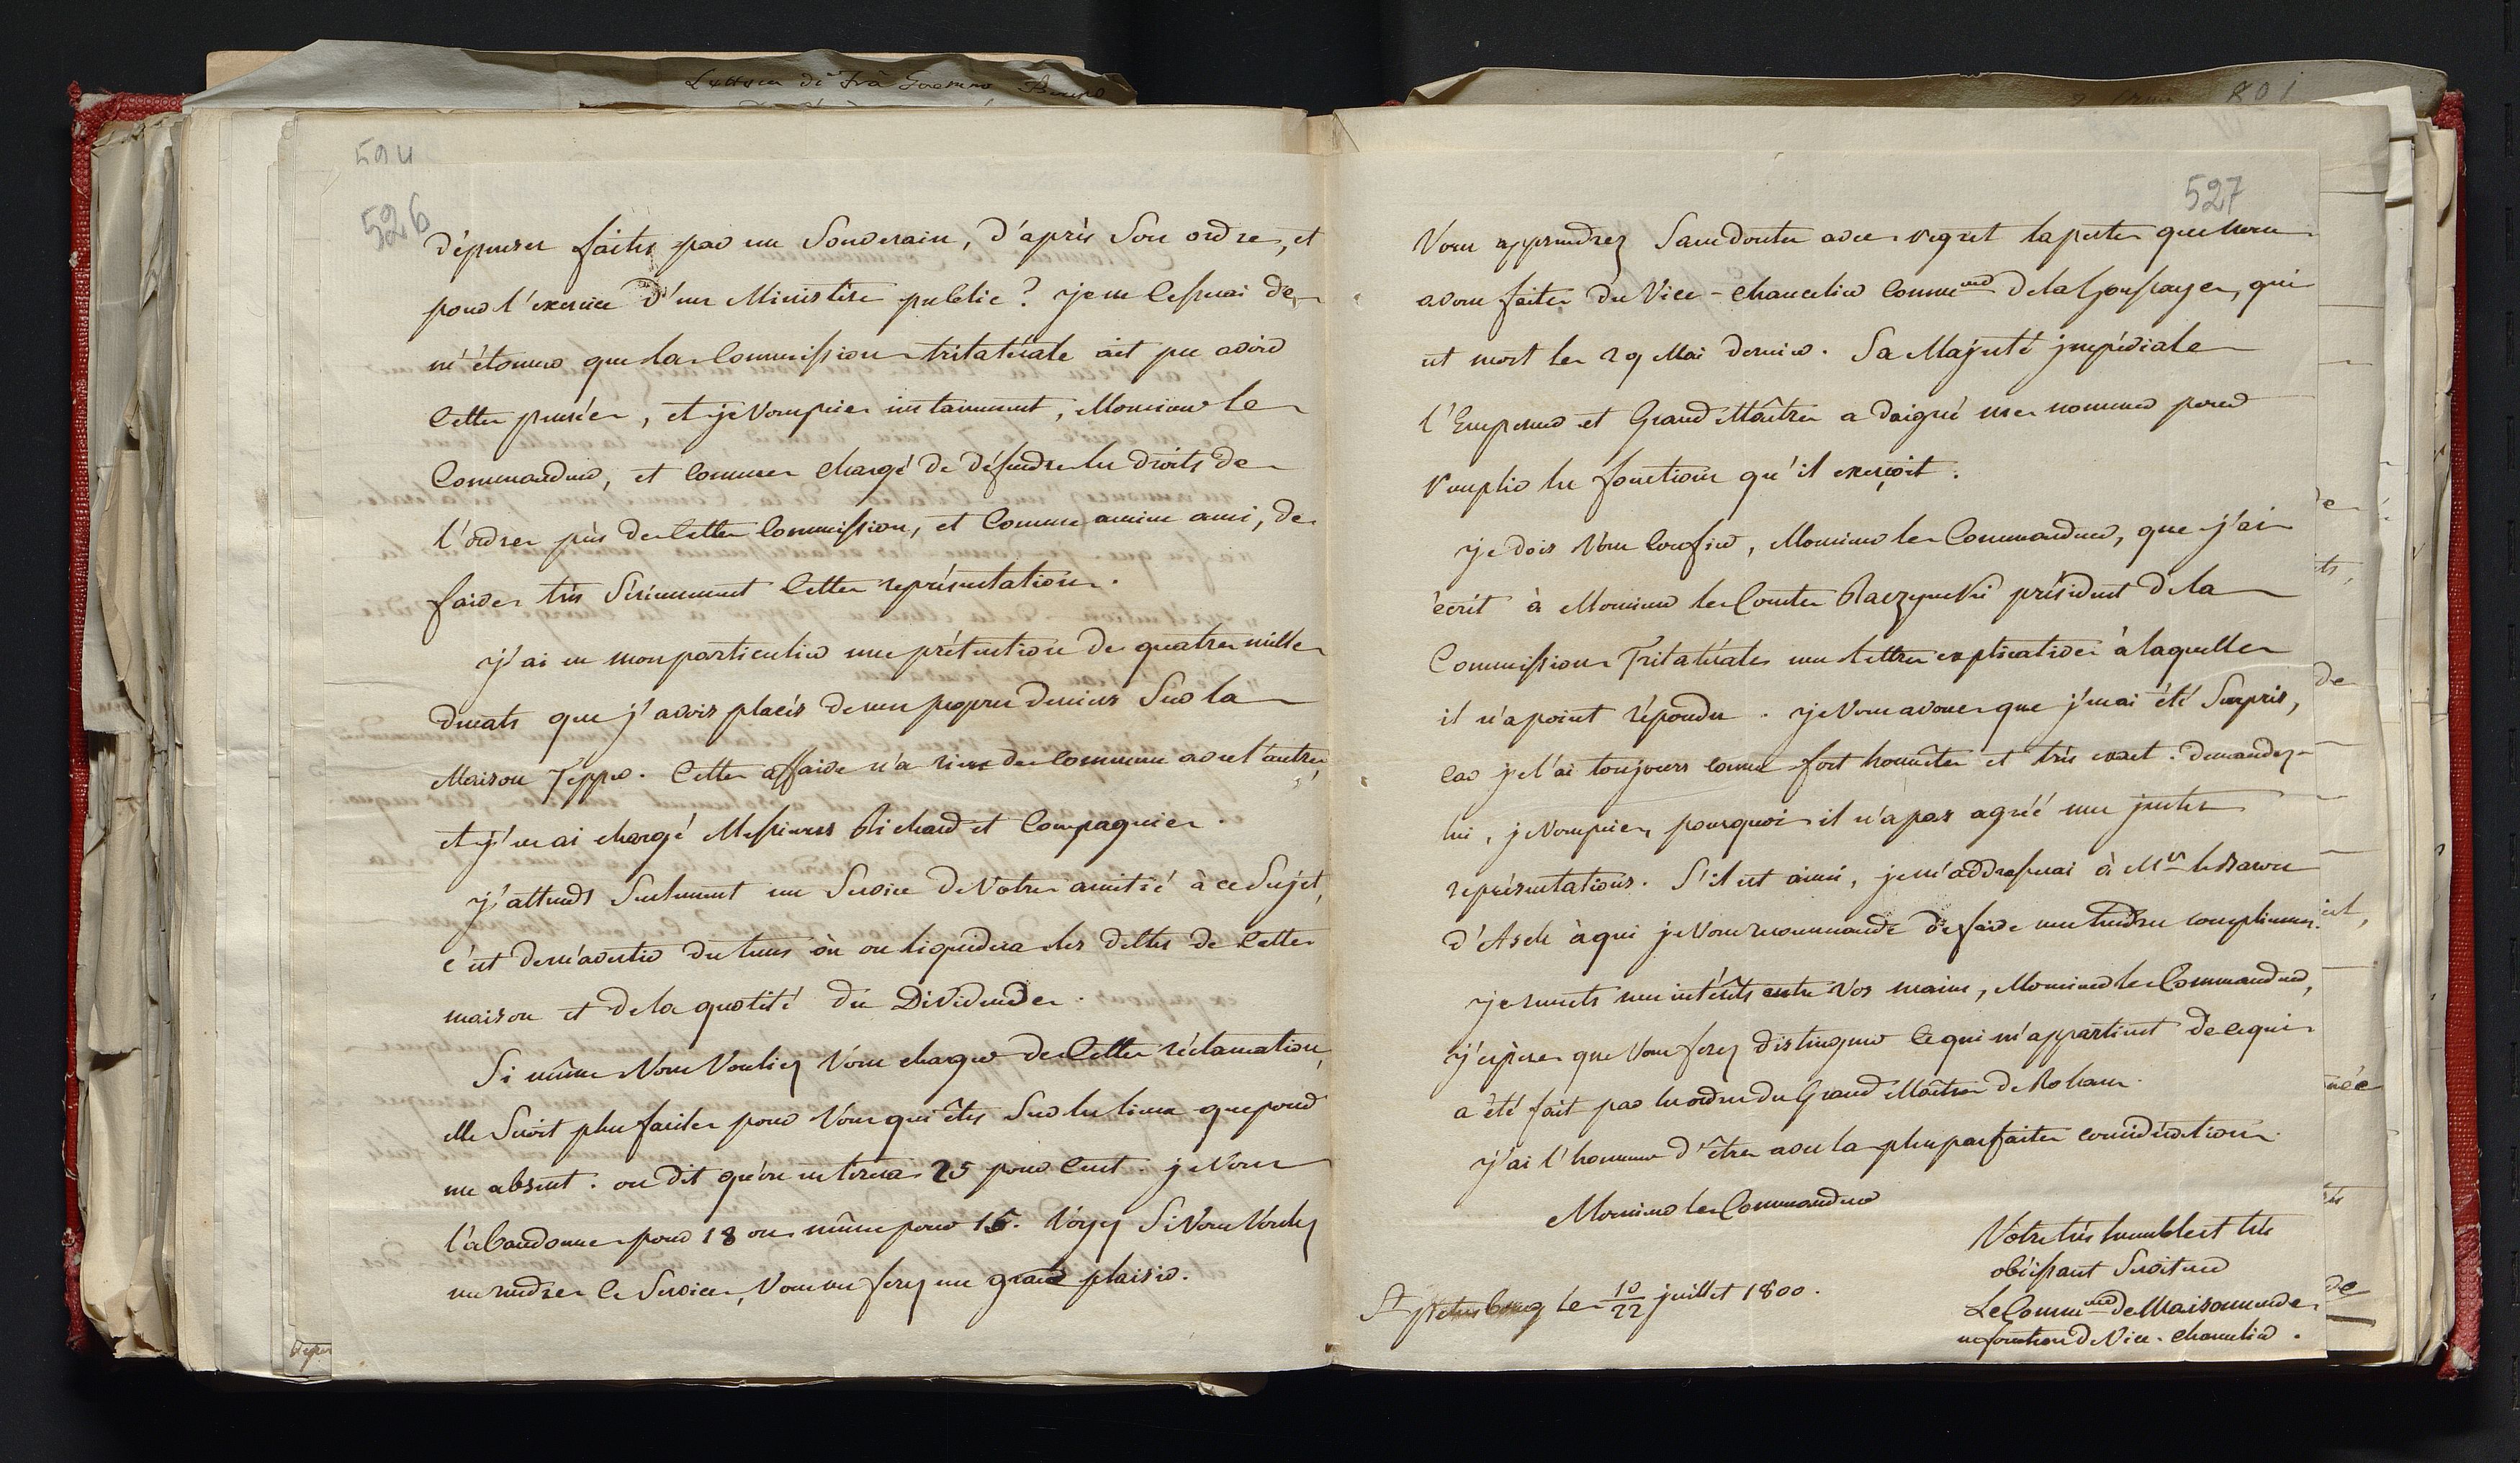 Lettera di Frà
801
594
526
dépenses faites par un Souverain, d'après Son ordre, et
pour l'exercice d'un Ministère public? je ne cesserai de
m'étonner que la Commission trilatérale ait pu avoir
cette pensée, et je vous prie instamment, Monsieur le
Commandeur, et comme chargé de défendre les droits de
l'ordre près de cette Commission, et comme ancien ami, de
faire très sérieusement cette représentation.
j'ai en mon particulier une prétention de quatre mille
ducats que j'avois placés de mes propres deniers sur la
Maison Tepper. Cette affaire n'a rien de commun avec l'autre,
et j'en ai chargé Messieurs Richard et Compagnie.
j'attends seulement un Service de Votre amitié à ce Sujet,
c'est de m'avertir du tems où on liquidera les dettes de cette
maison et de la quotité du Dividende.
Si même Vous Vouliez Vous charger de cette réclamation,
elle Seroit plus facile pour Vous qui êtes Sur les lieux que pour
un absent. on dit qu'on en tirera 25 pour cent. je Vous
l'abandonne pour 18 ou même pour 15. Voyez Si Vous Voulez
me rendre ce Service, Vous me ferez un grand plaisir.
527
Vous apprendrez Sans doute avec regret la perte que nous
avons faite du Vice-chancelier Comm.eur de la Houssaye, qui
est mort le 29 Mai dernier. Sa Majesté jmpériale
l'Empereur et Grand Maître a daigné me nommer pour
remplir les fonctions qu'il exerçoit.
je dois Vous confier, Monsieur le Commandeur, que j'ai
écrit à Monsieur le Comte Raczynski président de la
Commission Trilatérale une lettre explicative à laquelle
il n'a point répondu. je Vous avoue que j'en ai été Surpris,
car je l'ai toujours connu fort honnête et très exact. demandez-
lui, je Vous prie, pourquoi il n'a pas agréé mes justes
représentations. S'il est ainsi, je m'addresserai à Mr le Baron
d'Asch à qui je Vous recommande de faire mes tendres complimens.
je remets mes intérêts entre Vos mains, Monsieur le Commandeur,
j'espère que Vous ferez distinguer ce qui m'appartient de ce qui
a été fait par les ordres du Grand Maître de Rohan.
j'ai l'honneur d'être avec la plus parfaite considération
Monsieur le Commandeur
Votre très humble et très
obéissant Serviteur
St petersbourg le 10/22 juillet 1800.
Le Comm.eur de Maisonneuve
en fonction de Vice-chancelier.